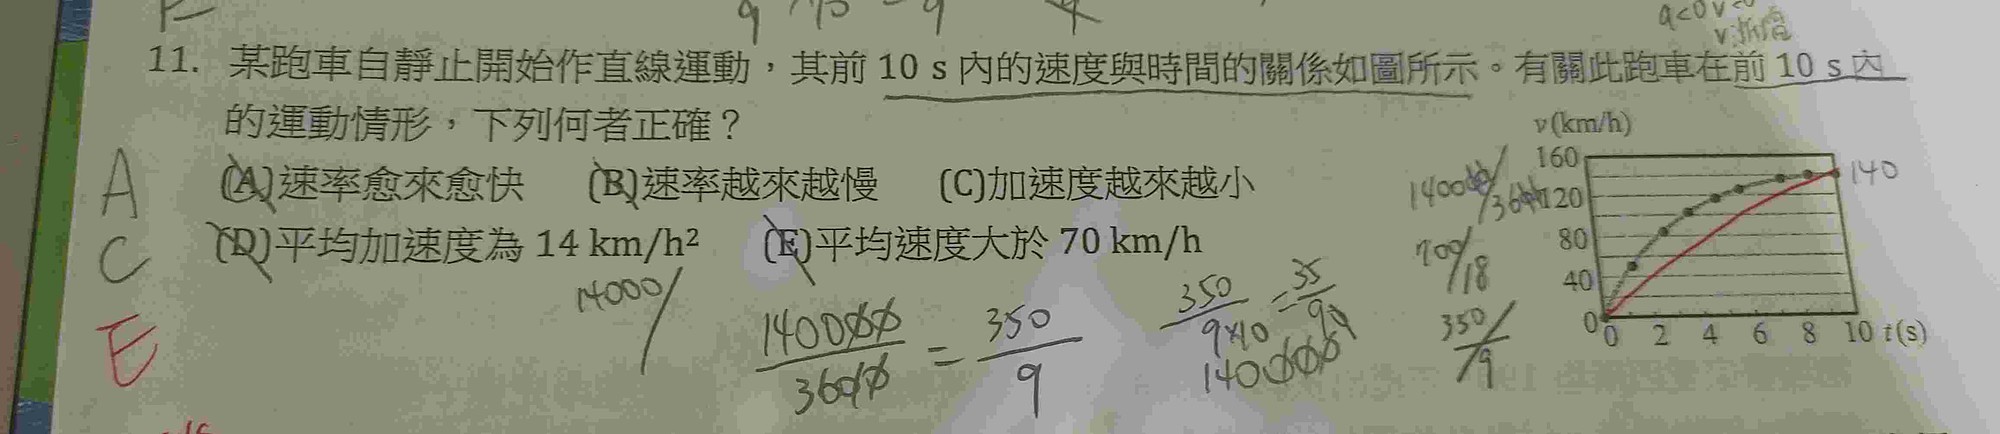 11. 某跑車自靜止開始作直線運動，其前 10 s 內的速度與時間的關係如圖所示。有關此跑車在前 10 s 內
的運動情形，下列何者正確？
(A)速率愈來愈快 (B)速率越來越慢 (C)加速度越來越小
(D)平均加速度為 14 km/h² (E)平均速度大於 70 km/h
A
C
E
14000/
140000/3600 = 350/9
350/9×10 = 35/90
140000
140000/3600
700/18
350/9
a<0 v<0
v(km/h)
160
120
80
40
0
0 2 4 6 8 10 t(s)
140